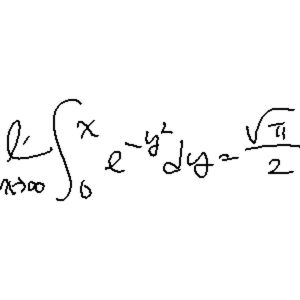 $\lim_{x \to \infty} \int_0^x e^{-y^2} dy = \frac{\sqrt{\pi}}{2}$